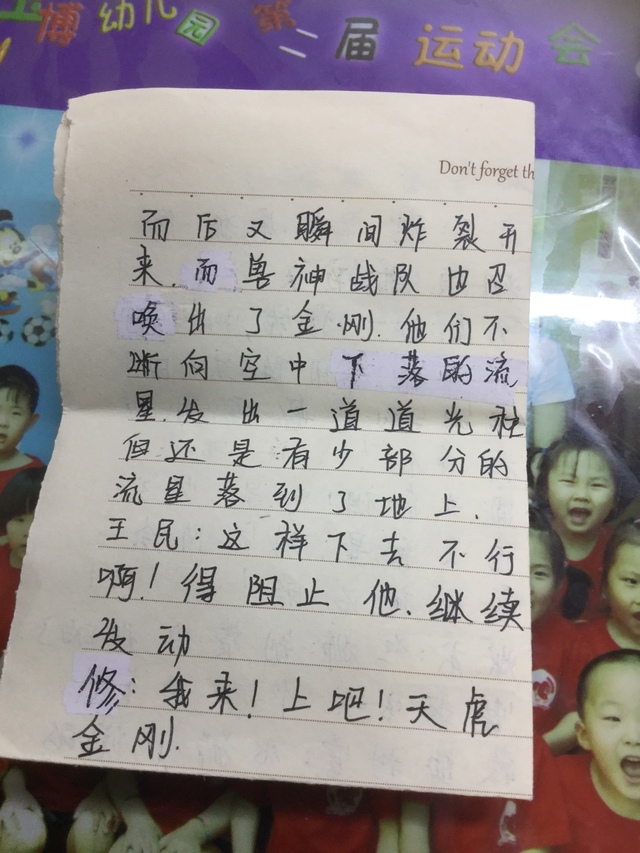 博幼儿园第二届运动会
Don't forget th
而后又瞬间炸裂开
来.而兽神战队也召
唤出了金刚.他们不
断向空中下落的流
星.发出一道道光柱
但还是有少部分的
流星落到了地上.
王民:这样下去不行
啊!得阻止他.继续
发动
修:我来!上吧!天虎
金刚.